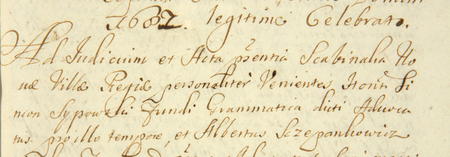 1682. legitime Celebrato.
Ad Judicium et Acta pñentia Scabinalia No
væ Villæ Regiæ personaliter Venientes Honti Si
meon Sypowski Fundi Grammatica dicti Advoca
tus pro illo tempore, et Albertus Sczepankowicz